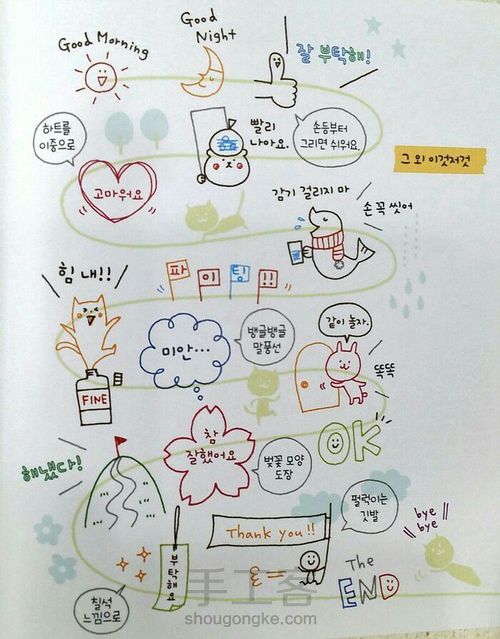 Good Morning
Good
Night
잘 부탁해!
하트를
이중으로
고마워요
빨리
나아요.
손등부터
그리면 쉬워요.
그 외 이것저것
감기 걸리지 마
손 꼭 씻어
힘 내!!
파이팅!!
FINE
미안...
뱅글뱅글
말풍선
같이 놀자.
똑똑
해냈다!
참
잘했어요
벚꽃 모양
도장
OK
펄럭이는
깃발
Thank you!!
bye
bye
부탁해요
칠석
느낌으로
The
END
手工客
shougongke.com